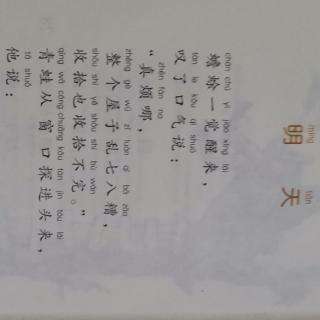 míng tiān
明天
chán chú yí jiào xǐng lái
蟾蜍一觉醒来，
tàn le kǒu qì shuō
叹了口气说：
zhēn fán na
“真烦哪，
zhěng gè wū zi luàn qī bā zāo
整个屋子乱七八糟，
shōu shi yě shōu shi bù wán
收拾也收拾不完。”
qīng wā cóng chuāng kǒu tàn jìn tóu lái
青蛙从窗口探进头来，
tā shuō
他说：